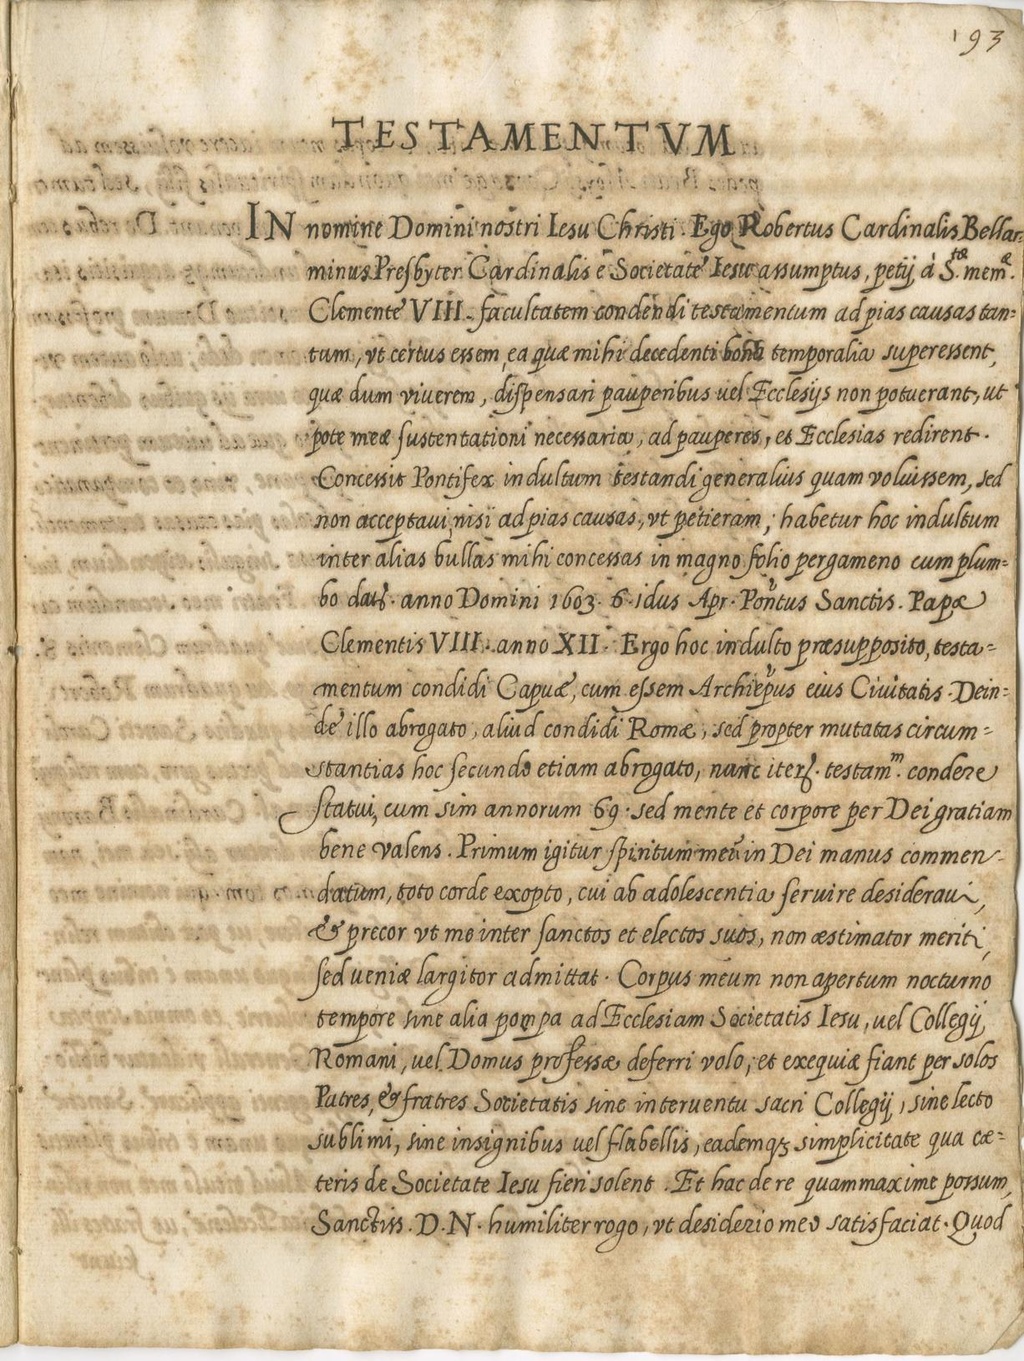 193
TESTAMENTVM
IN nomine Domini nostri Iesu Christi. Ego Robertus Cardinalis Bellar-
minus Presbyter Cardinalis è Societate Iesu assumptus, petij à S.tæ mem.æ
Clemente VIII. facultatem condendi testamentum ad pias causas tan=
tum, vt certus essem, ea quæ mihi decedenti bona temporalia superessent,
quæ dum viverem, dispensari pauperibus uel Ecclesijs non potuerant, ut
pote meæ sustentationi necessaria, ad pauperes, et Ecclesias redirent.
Concessit Pontifex indultum testandi generalius quam voluissem, sed
non acceptaui, nisi ad pias causas, vt petieram; habetur hoc indultum
inter alias bullas mihi concessas in magno folio pergameno cum plum=
bo dat. anno Domini 1603. 6. idus Apr. Pontus Sanctis. Papæ
Clementis VIII. anno XII. Ergo hoc indulto præsupposito, testa=
mentum condidi Capuæ, cum essem Archiepus eius Ciuitatis. Dein=
de illo abrogato, aliud condidi Romæ, sed propter mutatas circum=
stantias hoc secundo etiam abrogato, nunc iter. testam.m condere
statui, cum sim annorum 69. sed mente et corpore per Dei gratiam
bene valens. Primum igitur spiritum meū in Dei manus commen-
datum, toto corde exopto, cui ab adolescentia seruire desideraui,
& precor vt me inter sanctos et electos suos, non æstimator meriti,
sed ueniæ largitor admittat. Corpus meum non apertum nocturno
tempore sine alia pompa ad Ecclesiam Societatis Iesu, uel Collegij
Romani, uel Domus professæ deferri volo, et exequiæ fiant per solos
Patres, & fratres Societatis sine interuentu sacri Collegij, sine lecto
sublimi, sine insignibus uel flabellis, eademq; simplicitate qua cæ=
teris de Societate Iesu fieri solent. Et hac de re quam maxime possum,
Sanctiss. D. N. humiliter rogo, vt desiderio meo satisfaciat. Quod